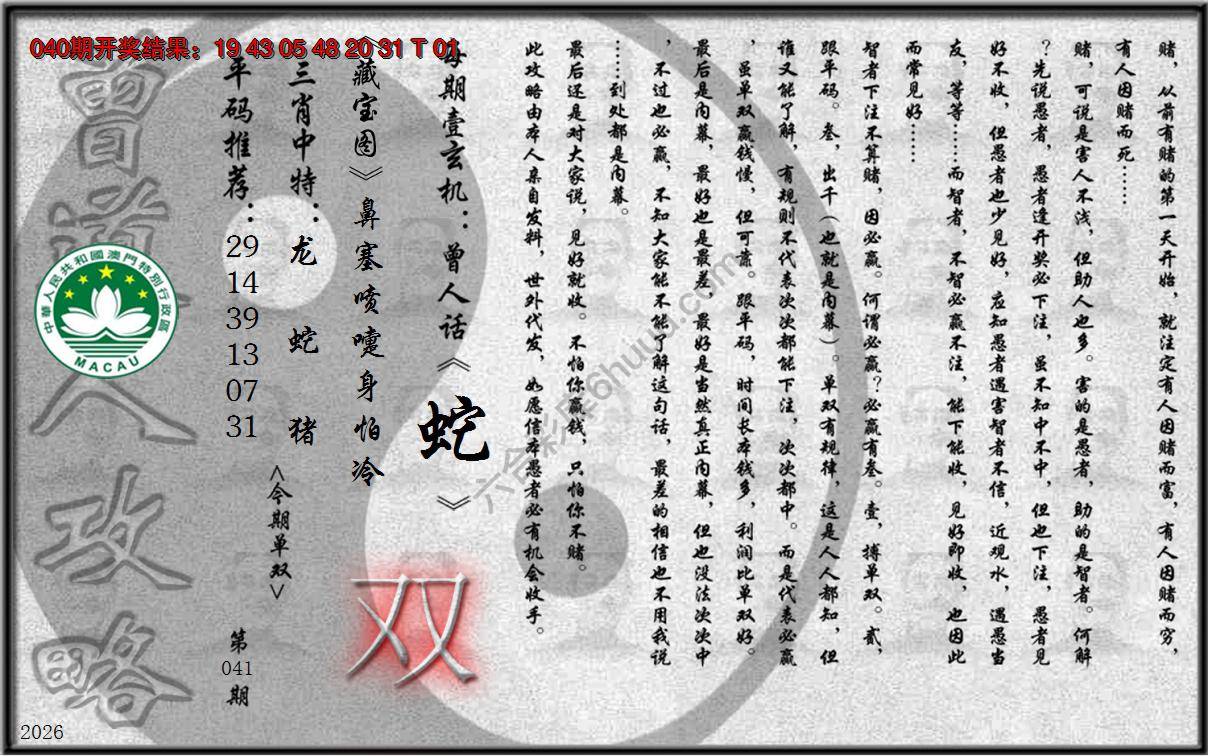 040期开奖结果：19 43 05 48 20 31 T 01
赌，从前有赌的第一天开始，就注定有人因赌而富，有人因赌而穷，
有人因赌而死……
赌，可说是害人不浅，但助人也多。害的是愚者，助的是智者。何解
？先说愚者，愚者逢开奖必下注，虽不知中不中，但也下注，愚者见
好不收，但愚者也少见好，应知愚者遇害智者不信，近观水，遇愚当
友，等等……而智者，不智必赢不注，能下能收，见好即收，也因此
而常见好……
智者下注不算赌，因必赢。何谓必赢？必赢有叁。壹，搏单双。贰，
跟平码。叁，出千（也就是内幕）。单双有规律，这是人人都知，但
谁又能了解，有规则不代表次次都能下注，次次都中。而是代表必赢
，虽单双赢钱慢，但可靠。跟平码，时间长本钱多，利润比单双好。
最后是内幕，最好也是最差，最好是当然真正内幕，但也没法次次中
，不过也必赢，不知大家能不能了解这句话，最差的相信也不用我说
……到处都是内幕。
最后还是对大家说，见好就收。不怕你赢钱，只怕你不赌。
此攻略由本人亲自发料，世外代发，如愿信本愚者必有机会收手。
每期壹玄机：曾人话《蛇》
《藏宝图》鼻塞喷嚏身怕冷
双
三肖中特：龙 蛇 猪
<今期单双>
平码推荐：29 14 39 13 07 31
第041期
曾道人攻略
中華人民共和國澳門特別行政區
MACAU
六合彩库6huuu.com
2026